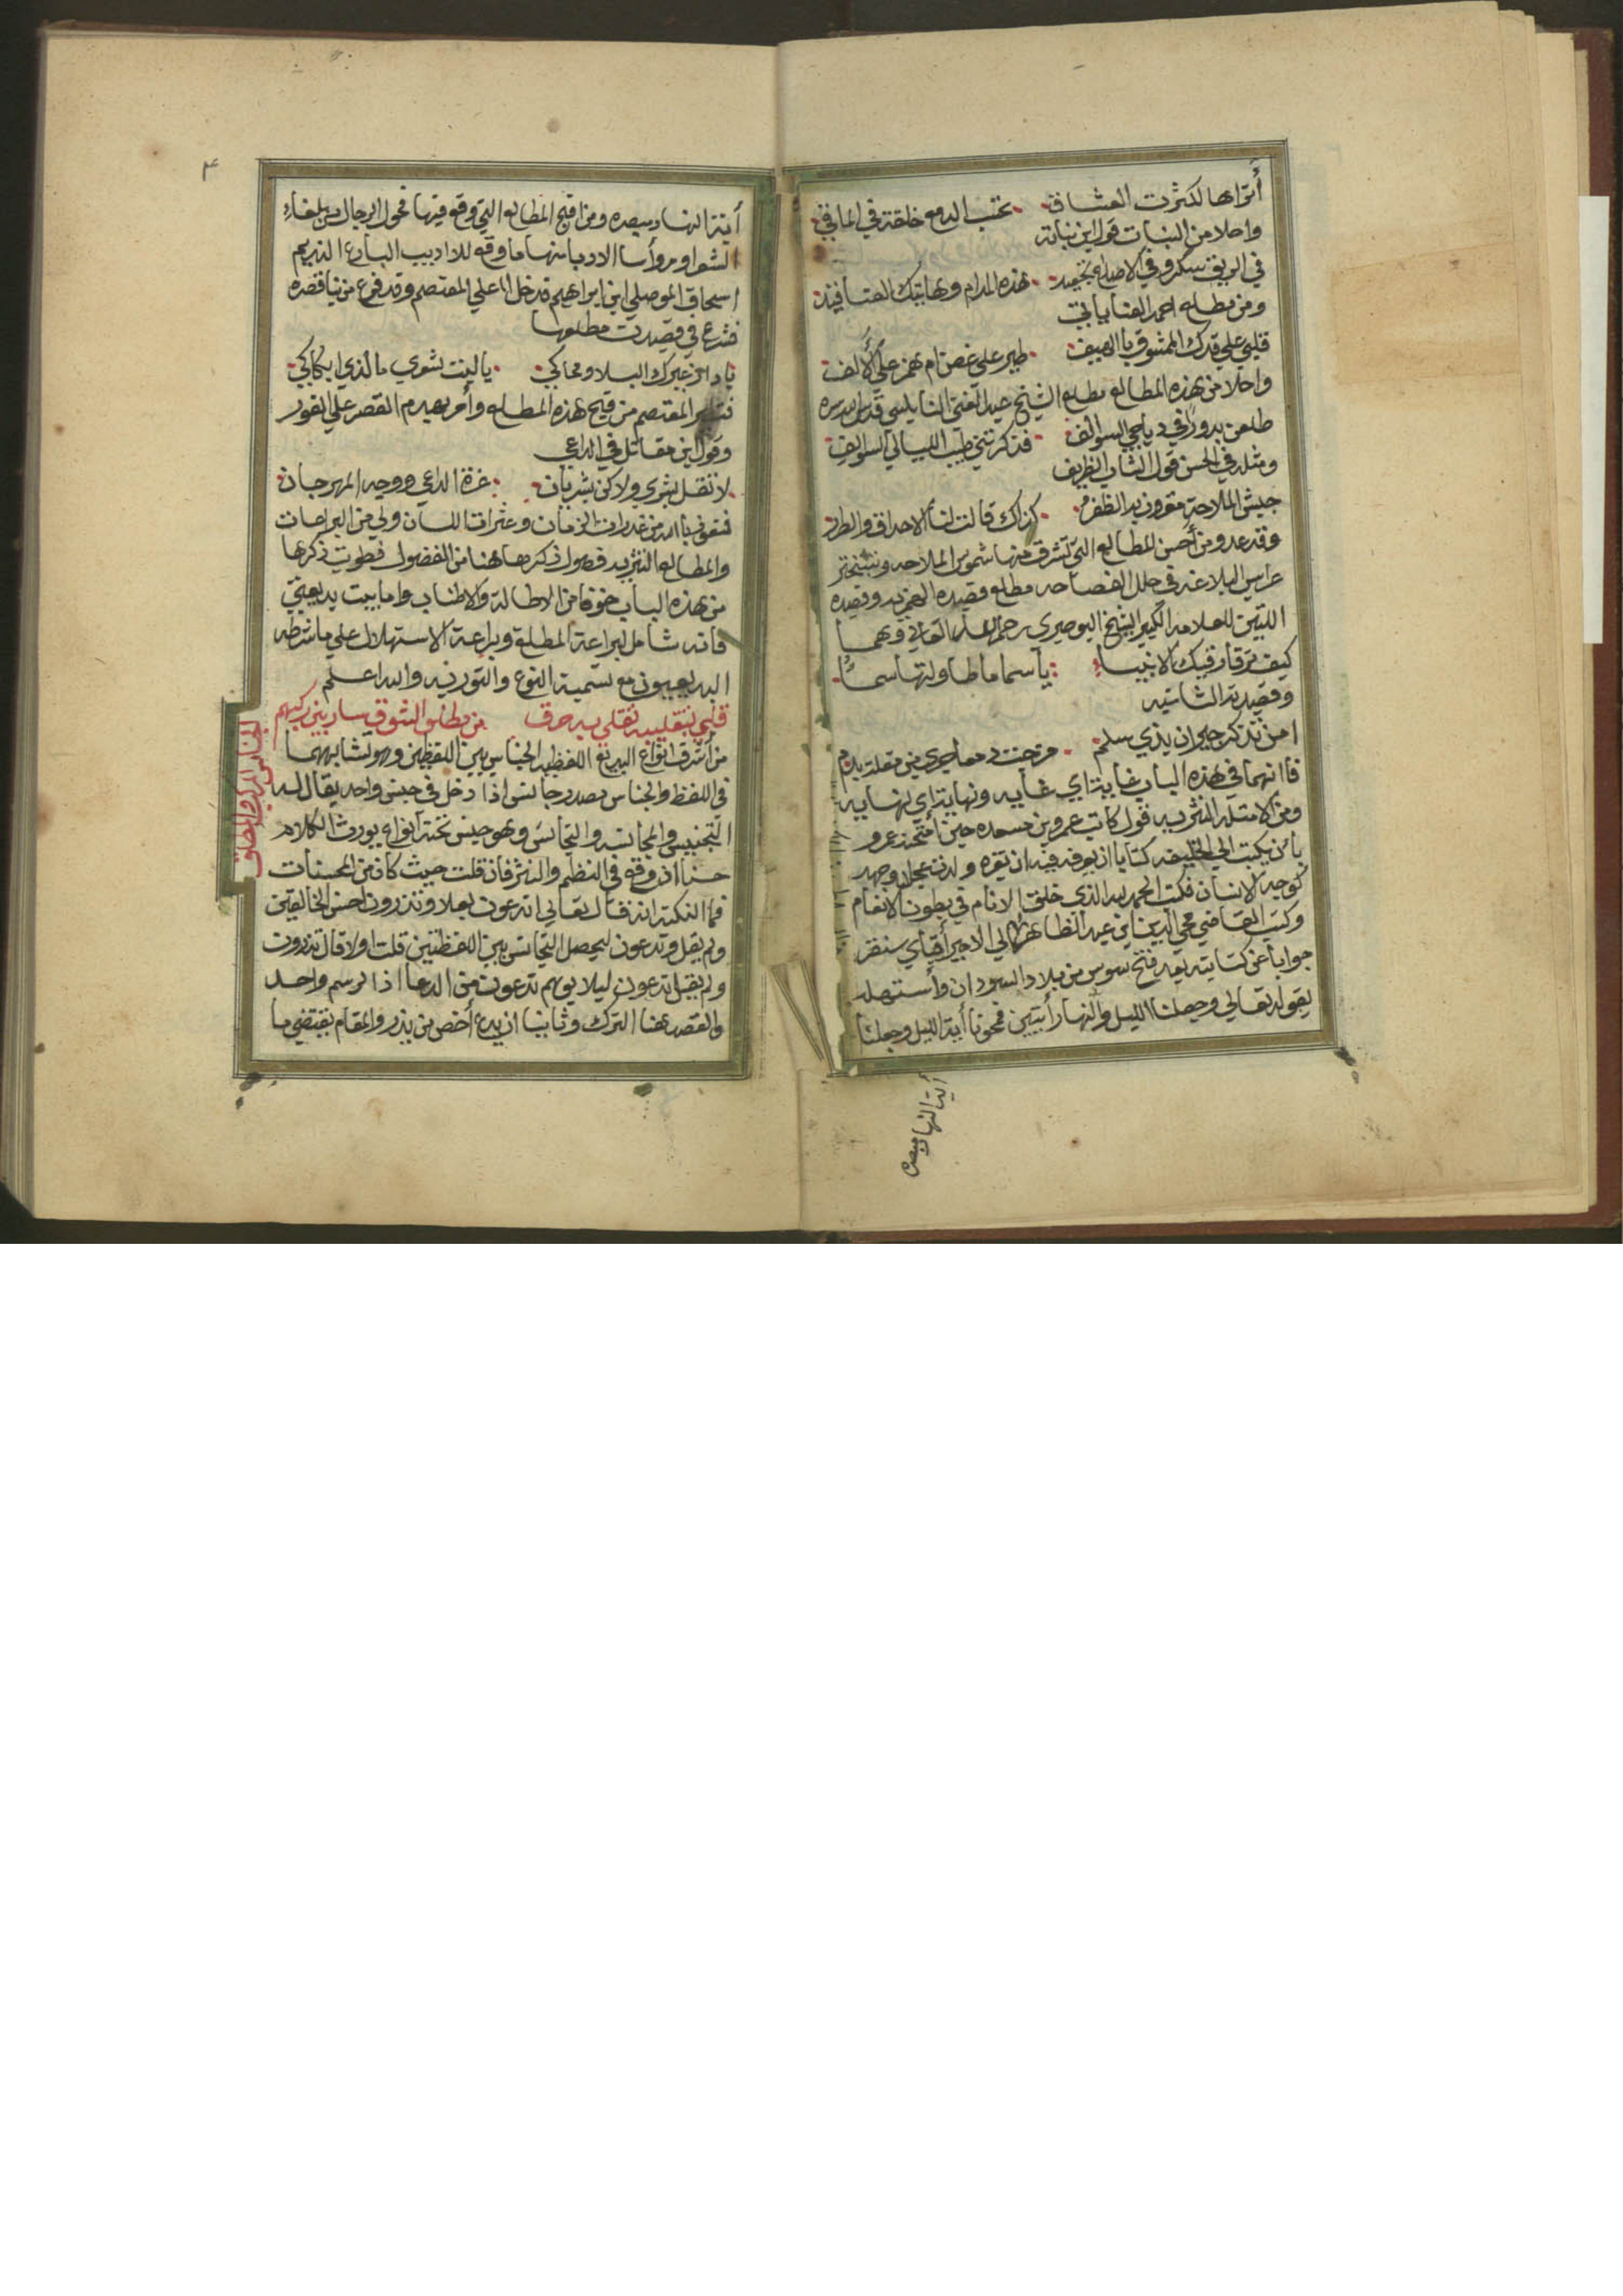 أتراها لكثرت العشاق تحسب الدمع خلقة في الماقي
واحلا من النبات قول ابن نباته
في الريق سكر وفي الاصداغ تجعيد هذه المدام وهاتيك العناقيد
ومن مطلع احمد العناياتي
قلبي على قدك الممشوق بالهيف طير على غصن ام همز على الألف
واحلا من هذه المطالع مطلع الشيخ عبد الغني النابلسي قدس الله سره
طلعن بدوراً في دياجي السوالف فذكرنني طيب الليالي السوالف
ومثله في الحسن قول الشاب الظريف
جيش الملاحة مقرون به الظفر كذاك قالت لنا الاحداق والطرر
وقد عدو من أحسن المطالع التي تشرق منها شموس الملاحه وتتبختر
عرايس البلاغه في حلل الفصاحه مطلع قصيده الهمزيه وقصيده
اللتين للعلامه الكبير الشيخ البوصيري رحمه الله تعالى وهما
كيف ترقا رقيك الانبياء يا سما ما طاولتها سماً
وقصيدته الثانيه
امن تذكر جيران بذي سلم مزجت دمعا جرى من مقلة بدم
فاانهما في هذه الباب غاية اي غايه ونهاية اي نهايه
ومن الامثلة النثريه قول كاتب عمرو بن مسعده حين أمتحنه عمرو
بأن يكتب الي الخليفه كتابا ان يعرفه فيه ان بقره ولدت عجلا وجهه
كوجه الانسان فكتب الحمد لله الذي خلق الانام في بطون الانعام
وكتب القاضي محي الدين ابن عبد الظاهر الي الامير أقباي سنقر
جوابا عن كتابته بعد فتح سوس من بلاد السودان وأستهله
بقوله تعالي وجعلنا الليل والنهار أيتين فمحونا أية الليل وجعلنا
أية النهار مبصره
٣
أية النهار مبصره ومن اقبح المطالع التي وقع فيها فحول الرجال من بلغاء
الشعرا ومروأسا الادبا منها ما وقع للاديب البارع النديم
اسحاق الموصلي ابن ابراهيم قد دخل اا علي المعتصم وقد فرغ من بنا قصره
فشرع في قصيدت مطلعها
يا دار غيرك البلا ومحاكي يا ليت شعري ما لذي ابكاكي
فتطير المعتصم من قبيح هذه المطلع وأمر بهدم القصر علي الفور
وقول ابن مقاتل في الداعي
لا تقل بشرى ولاكن بشريان غرة الداعي ووجه المهرجان
فنعوذ بالله من غدرات الزمان وعثرات اللسان ولي من البراعات
والمطالع النثريه فصول ذكرها هنا من الفضول فطويت ذكرها
من هذه الباب خوفا من الاطالة والاطناب واما بيت بديعيتي
فانه شامل لبراعة المطلع وبراعة الاستهلال علي ما شرطه
البديعيون مع تسمية النوع والتوريه والله اعلم
قلبي بتقليبه تقلي به حرق من مطلق الشوق سار بين ركبهم
من أشرف انواع البديع اللفظيه الجناس بين اللفظين وهو تشابههما
في اللفظ والجناس مصدر جانس اذا دخل في جنس واحد يقال له
التجنيس والمجانسه والتجانس وهو جنس تحته انواع يورث الكلام
حسنا اذ وقع في النظم والنثر فان قلت حيث كان من المحسنات
فما النكتة انه قال تعالي اتدعون بعلا وتذرون احسن الخالقين
ولم يقل وتدعون ليحصل التجانس بين اللفظتين قلت اولا قال تذرون
ولم يقل تدعون ليلا يوهم تدعون من الدعا اذ الرسم واحد
والقصد هنا الترك وثانيا ان يدع أخص من يذر والمقام يقتضي ما
الجناس المركب والمطلق